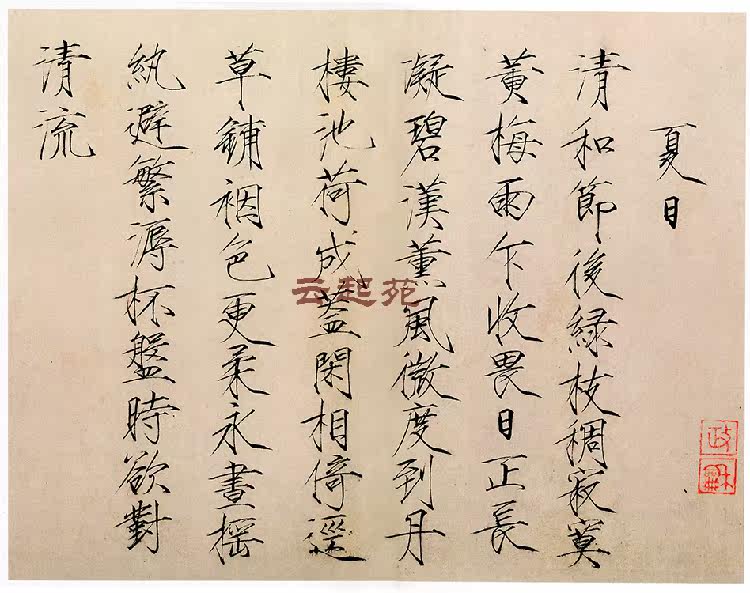 夏日
清和節後緑枝稠寂寞
黃梅雨乍收畏日正長
凝碧漢薰風微度到丹
樓池荷成蓋閑相倚逕
草鋪裀色更柔永晝搖
紈避繁溽杯盤時欲對
清流
政和
云起苑